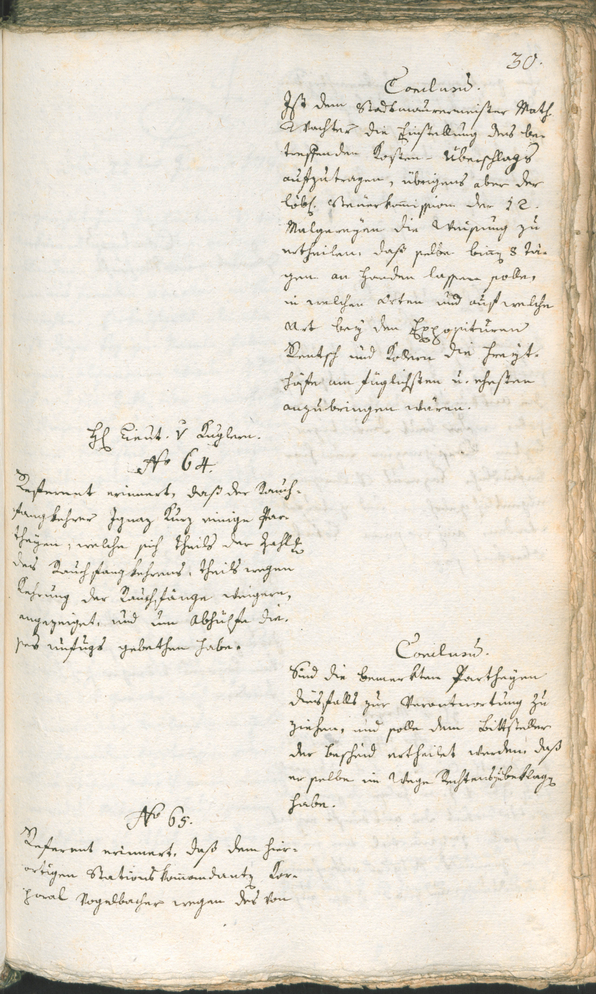 30.
Conclusum.
Ist dem Stadtmaurermeister Math.
Wachter die Einstellung des be-
treffenden Kosten-Überschlags
aufzutragen, übrigens aber der
löbl. Steuerkomission der 12.
Malgareyen die Weisung zu
ertheilen, daß selbe binnen 8 Tä-
gen an Handen lassen solle,
in welchen Orten und auf welche
Art bey den Exposituren
Rentsch und Kollern die Freyt-
höfe am füglichsten u. ehesten
anzubringen wären.
H. Lieut. v Kuglern.
No 64.
Referent erinnert, daß der Rauch-
fangkehrer Ignaz Kurz einige Par-
theyen, welche sich theils der Zahlg
des Rauchfangkehrens, theils wegen
Kehrung der Rauchfänge weigern,
angezeiget, und um Abhülfe die-
ses unfugs gebethen habe.
Conclusum.
Sind die bemerkten Partheyen
diesfalls zur Verantwortung zu
ziehen, und solle dem Bittsteller
der Bescheid ertheilet werden, daß
er selbe im Wege Rechtens
habe.
No 65.
Referent erinnert, daß dem hier-
ortigen Stations Kommandanten Kor-
poral Vogelbacher wegen des von